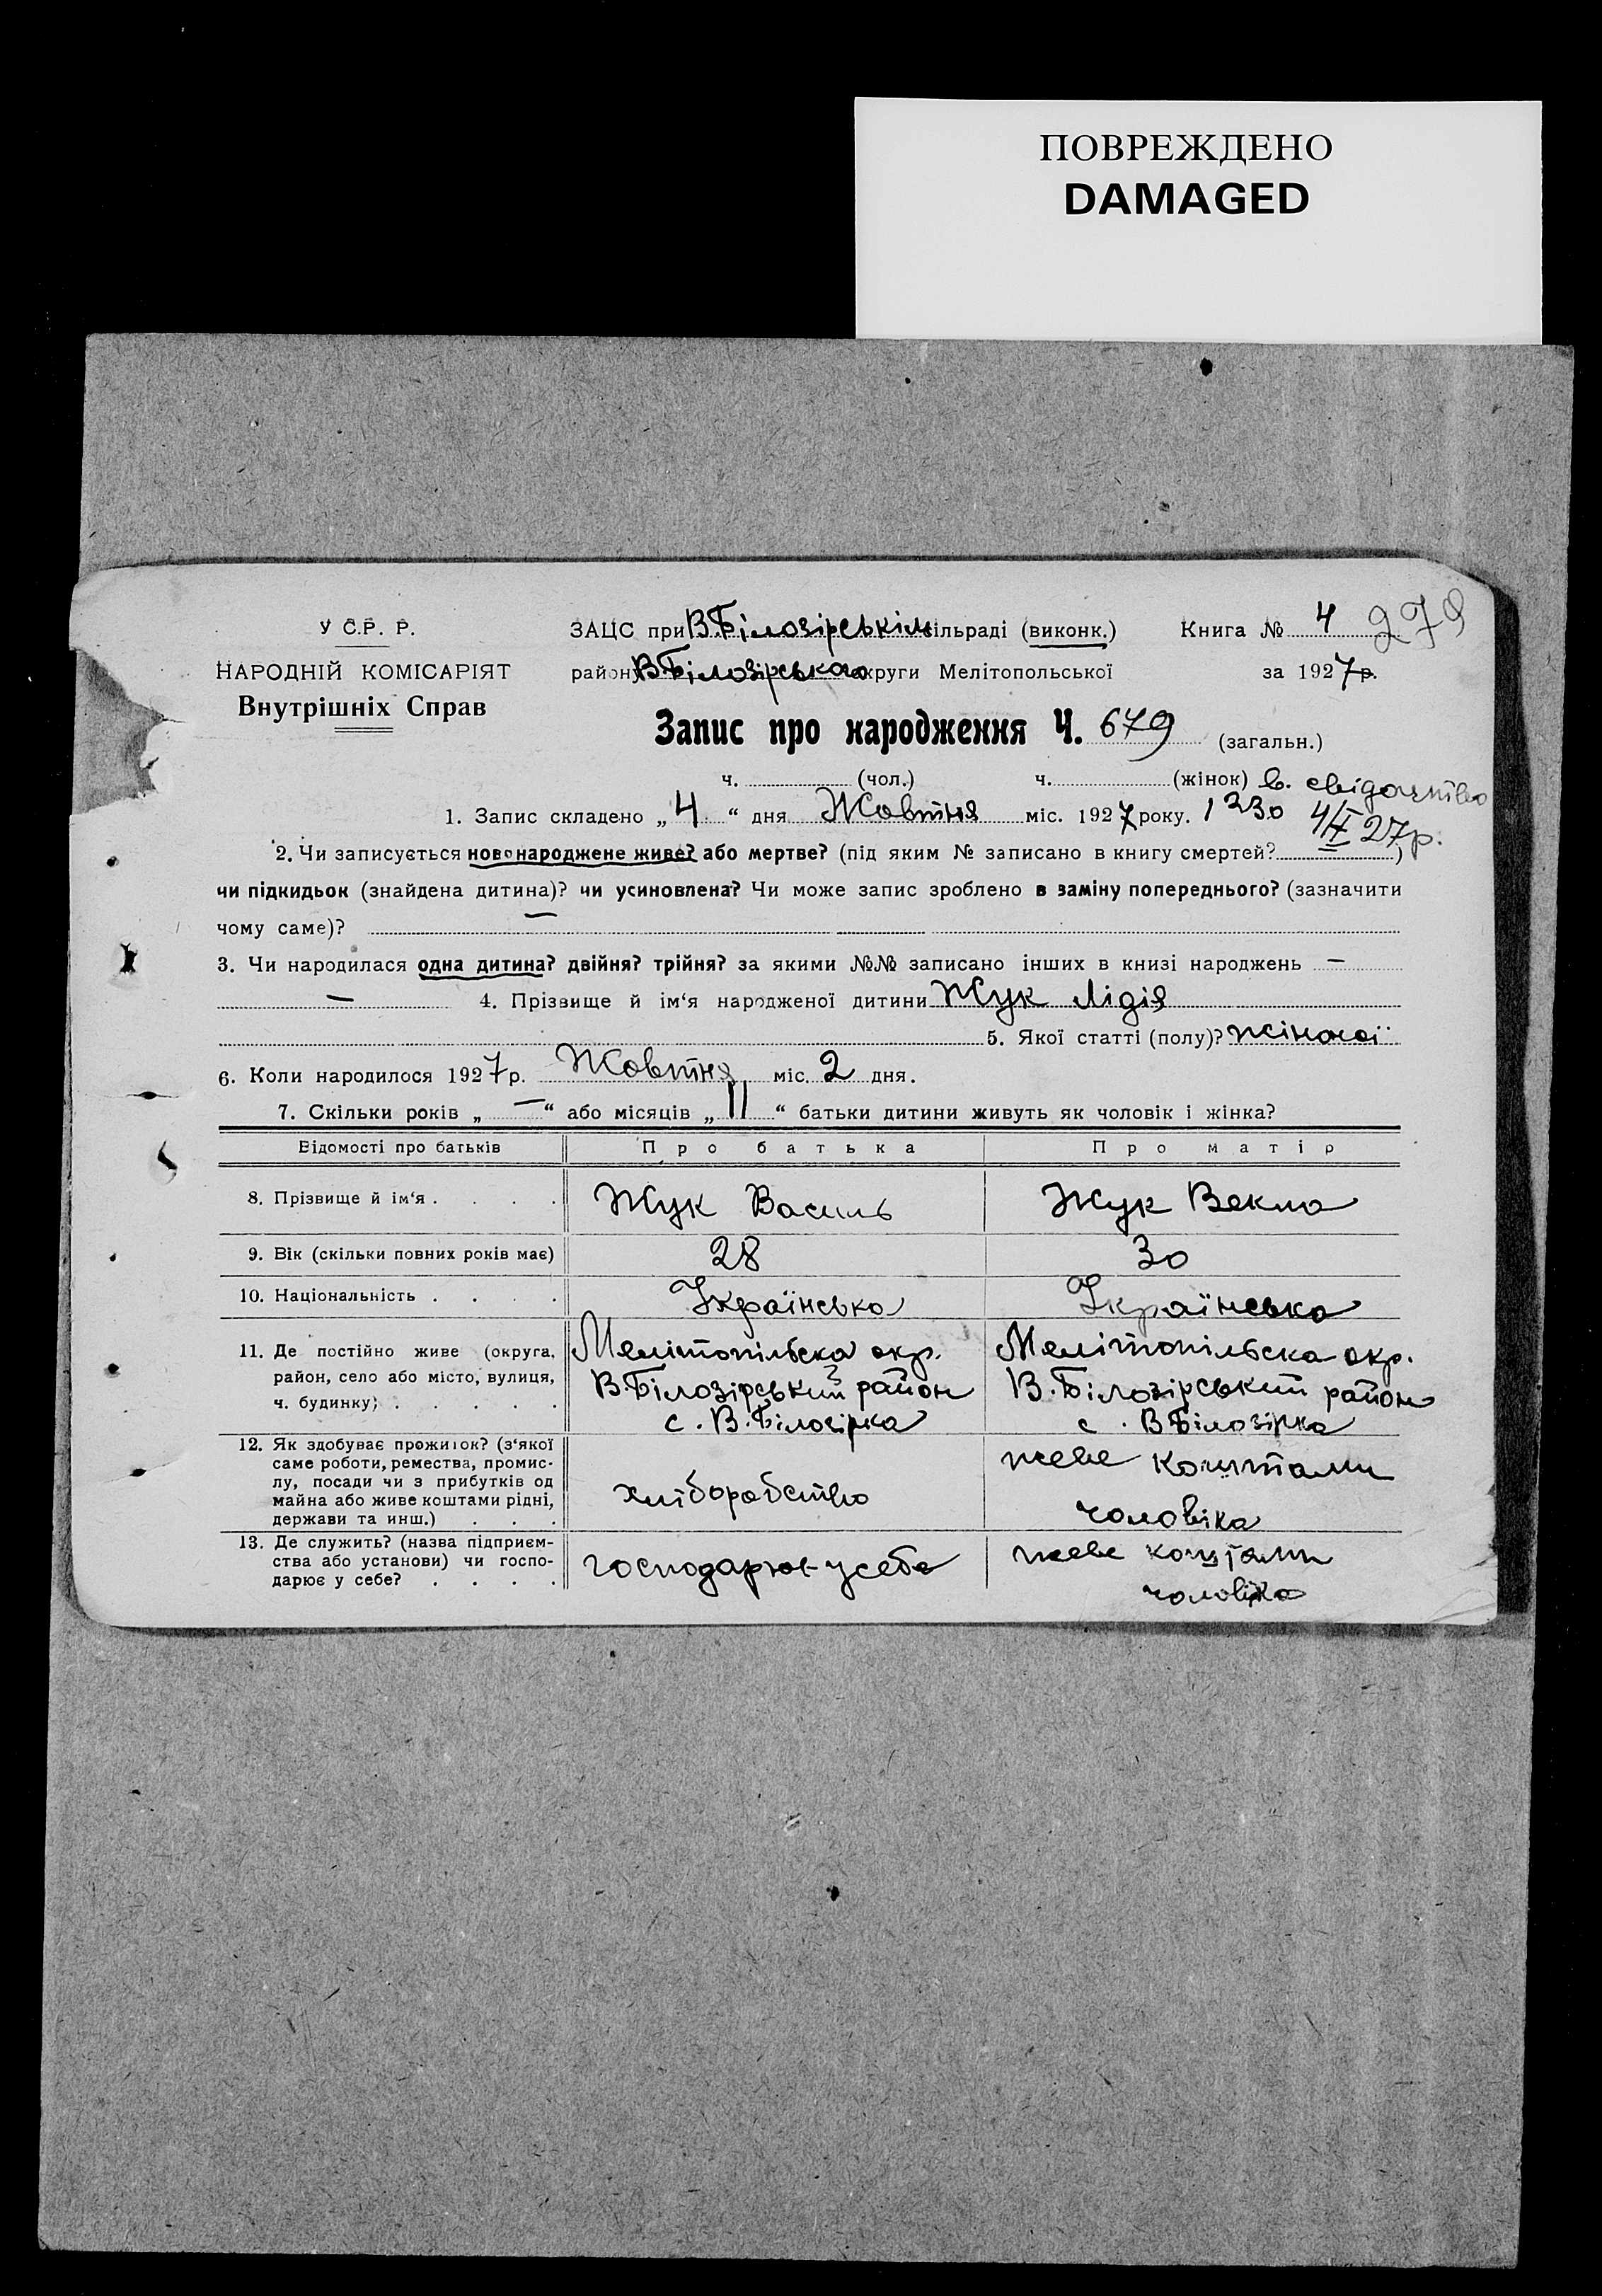 ПОВРЕЖДЕНО
DAMAGED
У С.Р. Р.
НАРОДНІЙ КОМІСАРІЯТ
Внутрішніх Справ
ЗАЦС при В Білозірськім сільраді (виконк.) Книга № 4 279
району В.Білозірського округи Мелітопольської за 1927 р.
Запис про народження Ч. 679 (загальн.)
ч. (чол.) ч. (жінок) в. свідоцтво
1. Запис складено „4" дня Жовтня міс. 1927 року. 1330 4/X 27р.
2. Чи записується новонароджене живе? або мертве? (під яким № записано в книгу смертей? )
чи підкидьок (знайдена дитина)? чи усиновлена? Чи може запис зроблено в заміну попереднього? (зазначити
чому саме)? —
3. Чи народилася одна дитина? двійня? трійня? за якими №№ записано інших в книзі народжень —
— 4. Прізвище й ім'я народженої дитини Жук Лідія
5. Якої статті (полу)? жіночої
6. Коли народилося 1927 р. Жовтня міс. 2 дня.
7. Скільки років „ — " або місяців „ 11 " батьки дитини живуть як чоловік і жінка?
Відомості про батьків Про батька Про матір
8. Прізвище й ім'я . . . . Жук Василь Жук Векла
9. Вік (скільки повних років має) 28 30
10. Національність . . . . Українська Українська
11. Де постійно живе (округа, Мелітопільська окр. Мелітопільска окр.
район, село або місто, вулиця, В.Білозірський район В.Білозірський район
ч. будинку) . . . . . с. В.Білозірка с. В Білозірка
12. Як здобуває прожиток? (з'якої
саме роботи, ремества, промис- живе коштами
лу, посади чи з прибутків од
майна або живе коштами рідні, хліборобство
держави та инш.) . . . чоловіка
13. Де служить? (назва підприєм- живе коштами
ства або установи) чи госпо- господарює усебе
дарює у себе? . . . . чоловіка